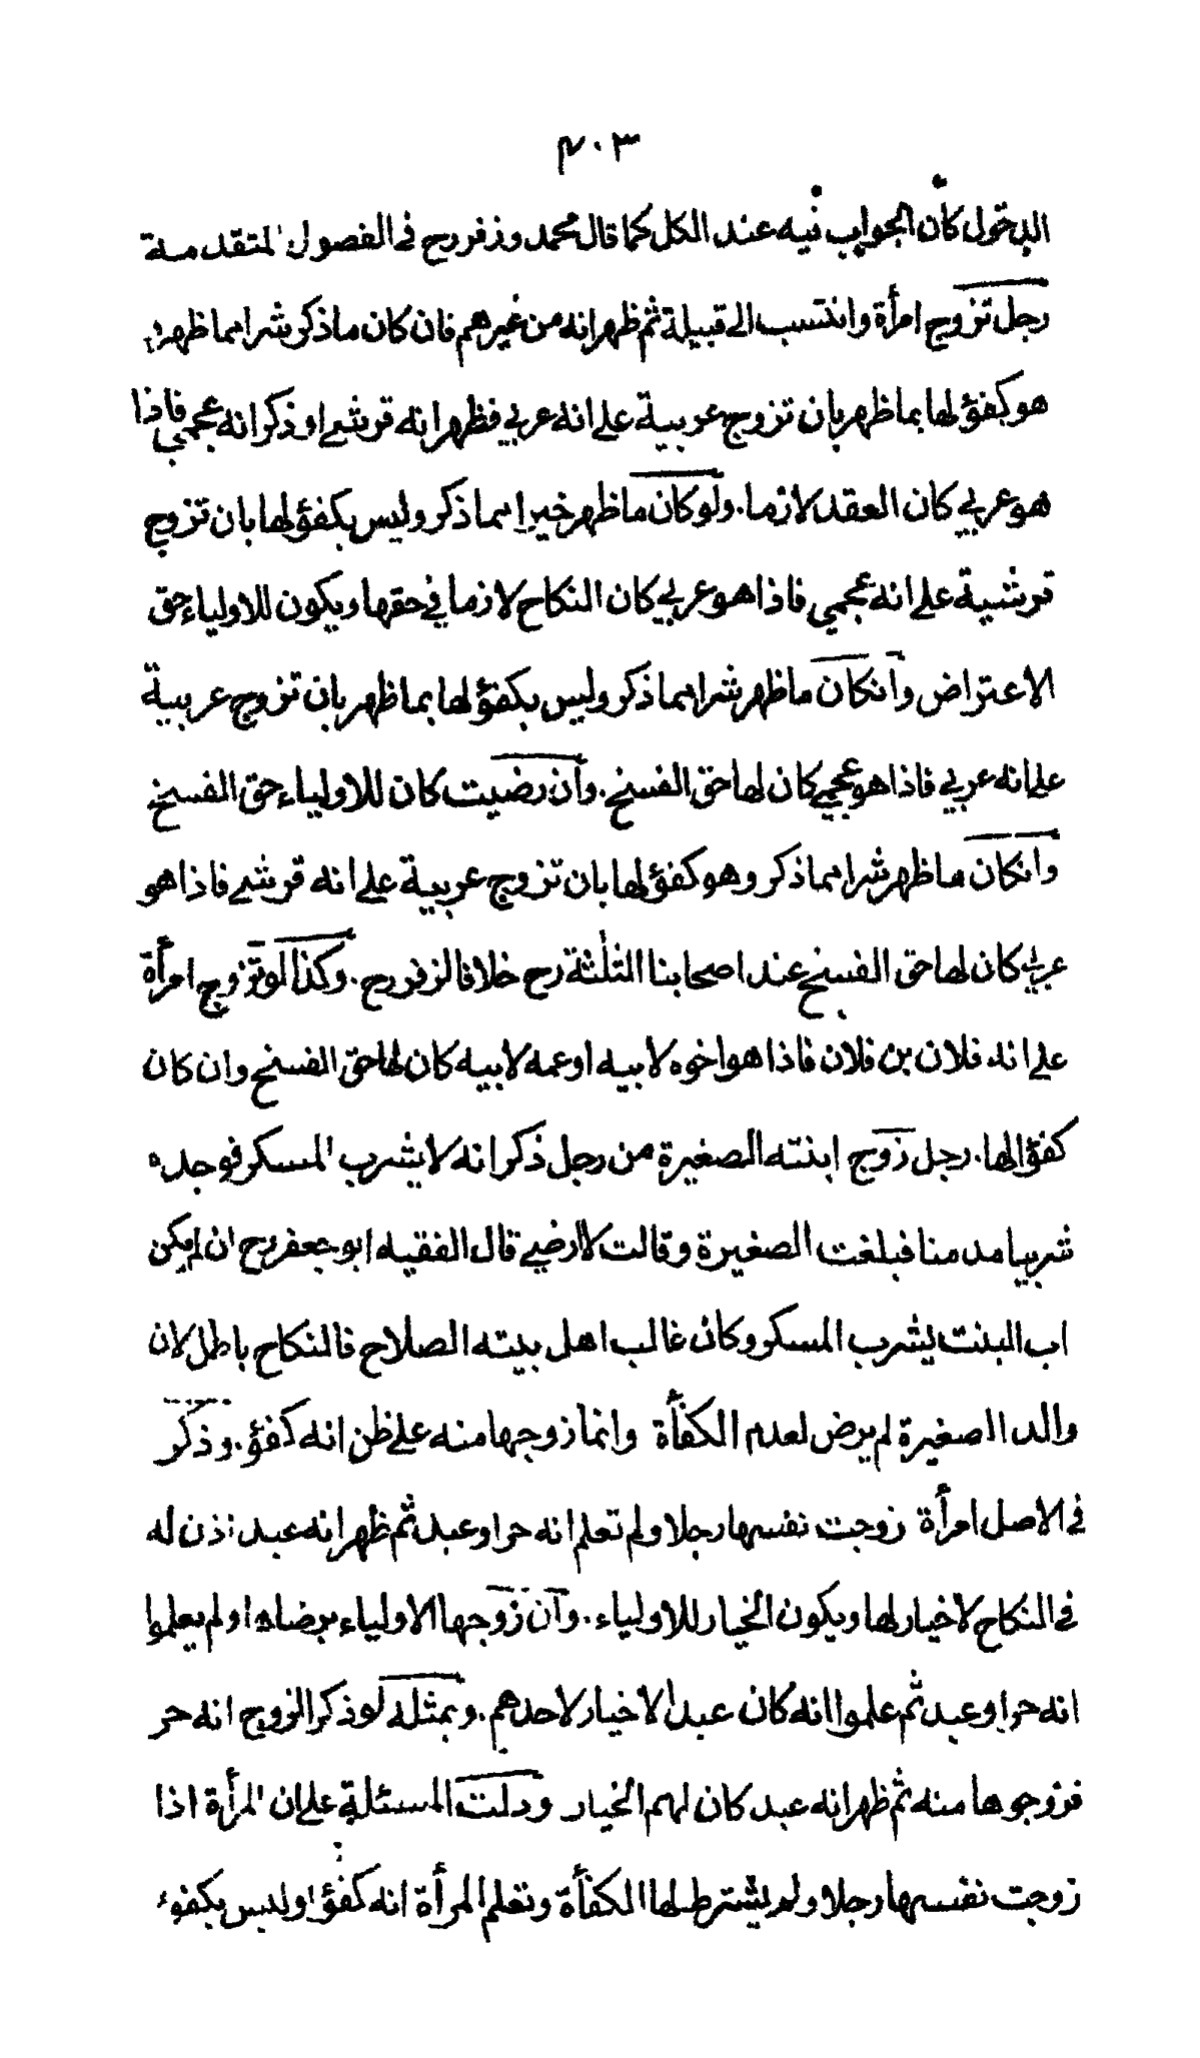 ٤٠٣
الدخول كان الجواب فيه عند الكل كما قال محمد وزفر رح في الفصول المتقدمة
رجل تزوج امرأة وانتسب الى قبيلة ثم ظهر انه من غيرهم فان كان ما ذكر شرا مما ظهر
هو كفؤ لها بما ظهر بان تزوج عربية على انه عربي فظهر انه قرشي او ذكر انه عجمي فاذا
هو عربي كان العقد لازما. ولو كان ما ظهر خيرا مما ذكر وليس بكفؤ لها بان تزوج
قرشية على انه عجمي فاذا هو عربي كان النكاح لازما في حقها ويكون للاولياء حق
الاعتراض وان كان ما ظهر شرا مما ذكر وليس بكفؤ لها بما ظهر بان تزوج عربية
على انه عربي فاذا هو عجمي كان لها حق الفسخ. وان رضيت كان للاولياء حق الفسخ
وان كان ما ظهر شرا مما ذكر وهو كفؤ لها بان تزوج عربية على انه قرشي فاذا هو
عربي كان لها حق الفسخ عند اصحابنا الثلثة رح خلافا لزفر رح. وكذا لو تزوج امرأة
على انه فلان بن فلان فاذا هو اخوه لابيه او عمه لابيه كان لها حق الفسخ وان كان
كفؤا لها. رجل زوج ابنته الصغيرة من رجل ذكر انه لا يشرب المسكر فوجده
شريبا مدمنا فبلغت الصغيرة وقالت لا ارضى قال الفقيه ابو جعفر رح ان لم يكن
اب البنت يشرب المسكر وكان غالب اهل بيته الصلاح فالنكاح باطل لان
والد الصغيرة لم يرض لعدم الكفأة وانما زوجها منه على ظن انه كفؤ. وذكر
في الاصل امرأة زوجت نفسها رجلا ولم تعلم انه حر او عبد ثم ظهر انه عبد اذن له
في النكاح لا خيار لها ويكون الخيار للاولياء. وان زوجها الاولياء برضاها ولم يعلموا
انه حر او عبد ثم علموا انه كان عبدا لا خيار لاحدهم. وبمثله لو ذكر الزوج انه حر
فزوجوها منه ثم ظهر انه عبد كان لهم الخيار ودلت المسئلة على ان المرأة اذا
زوجت نفسها رجلا ولم يشترط لها الكفأة وتعلم المرأة انه كفؤ او ليس بكفوء